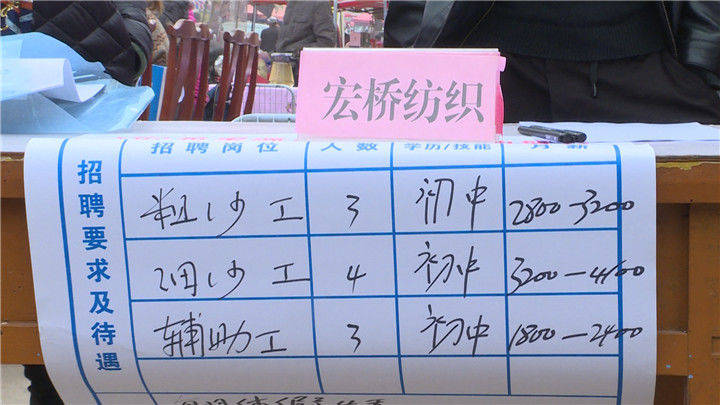 宏桥纺织
招聘要求及待遇
招聘岗位 人数 学历/技能 月薪
粗沙工 3 初中 2800-3200
细沙工 4 初中 3200-4100
辅助工 3 初中 1800-2400